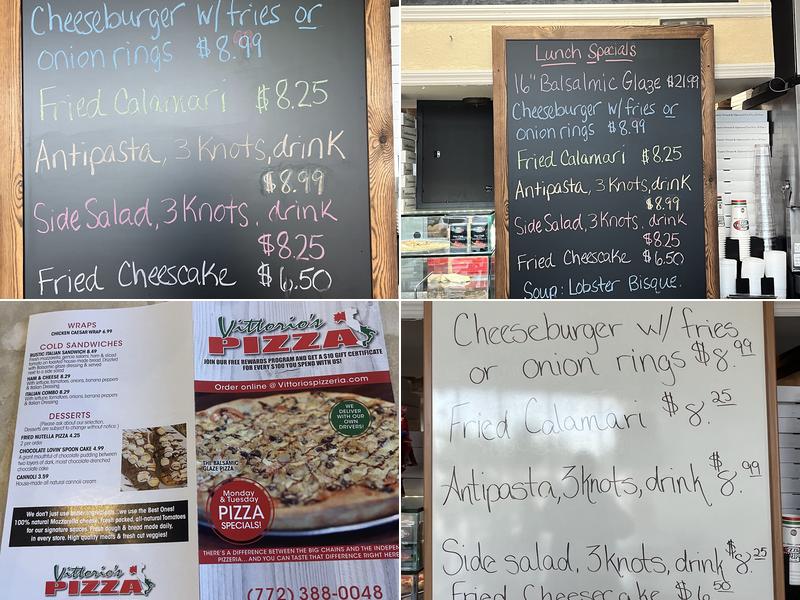 Cheeseburger w/ fries or
onion rings $8.99
Fried Calamari $8.25
Antipasta, 3 Knots, drink
$8.99
Side Salad, 3 Knots, drink
$8.25
Fried Cheescake $6.50
Lunch Specials
16" Balsalmic Glaze $21.99
Cheeseburger w/ fries or
onion rings $8.99
Fried Calamari $8.25
Antipasta, 3 Knots, drink
$8.99
Side Salad, 3 Knots, drink
$8.25
Fried Cheescake $6.50
Soup: Lobster Bisque.
WRAPS
CHICKEN CAESAR WRAP 6.99
COLD SANDWICHES
RUSTIC ITALIAN SANDWICH 8.49
HAM & CHEESE 8.29
With lettuce, tomatoes, onions, banana peppers
& Italian Dressing
ITALIAN COMBO 8.29
With lettuce, tomatoes, onions, banana peppers
& Italian Dressing
DESSERTS
(Please ask about our selection,
Desserts are subject to change without notice.)
FRIED NUTELLA PIZZA 4.25
2 per order
CHOCOLATE LOVIN' SPOON CAKE 4.99
A giant mouthful of chocolate pudding between
two layers of dark, moist chocolate-drenched
chocolate cake
CANNOLI 3.59
House-made all natural cannoli cream
We don't just use ingredients...we use the Best Ones!
100% natural Mozzarella cheese, Fresh packed, all-natural Tomatoes
for our signature sauces. Fresh dough & bread made daily,
in every store. High quality meats & fresh cut veggies!
Vittorio's
PIZZA
Vittorio's
PIZZA
JOIN OUR FREE REWARDS PROGRAM AND GET A $10 GIFT CERTIFICATE
FOR EVERY $100 YOU SPEND WITH US!
Order online @ Vittoriospizzeria.com
WE
DELIVER
WITH OUR
OWN
DRIVERS!
THE BALSAMIC
GLAZE PIZZA
Monday
& Tuesday
PIZZA
SPECIALS!
THERE'S A DIFFERENCE BETWEEN THE BIG CHAINS AND THE INDEPEN
PIZZERIA... AND YOU CAN TASTE THAT DIFFERENCE RIGHT HERE
(772) 388-0048
Cheeseburger w/ fries
or onion rings $8.99
Fried Calamari $8.25
Antipasta, 3 knots, drink $8.99
Side salad, 3 knots, drink $8.25
Fried Cheesecake $6.50